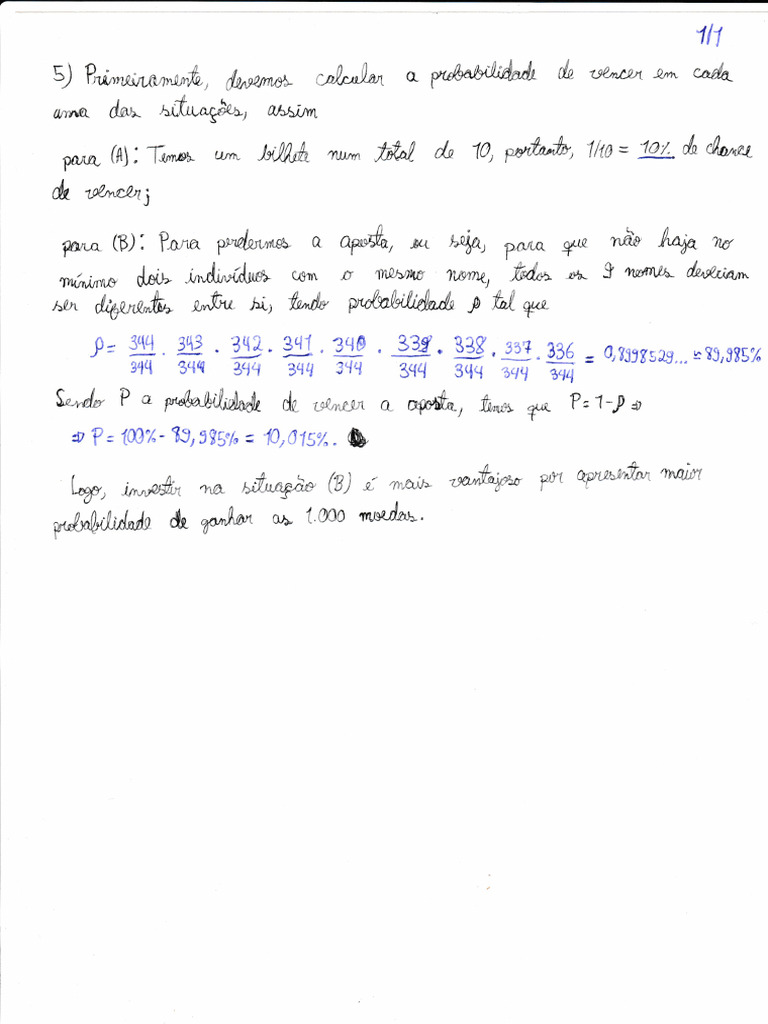 1/1
5) Primeiramente, devemos calcular a probabilidade de vencer em cada
uma das situações, assim
para (A): Temos um bilhete num total de 10, portanto, 1/10 = 10% de chance
de vencer;
para (B): Para perdermos a aposta, ou seja, para que não haja no
mínimo dois indivíduos com o mesmo nome, todos os 9 nomes deveriam
ser diferentes entre si, tendo probabilidade ρ tal que
ρ = 344/344 · 343/344 · 342/344 · 341/344 · 340/344 · 339/344 · 338/344 · 337/344 · 336/344 = 0,8998529... ≈ 89,985%
Sendo P a probabilidade de vencer a aposta, temos que P = 1 - ρ ⇒
⇒ P = 100% - 89,985% = 10,015%.
Logo, investir na situação (B) é mais vantajoso por apresentar maior
probabilidade de ganhar as 1.000 moedas.